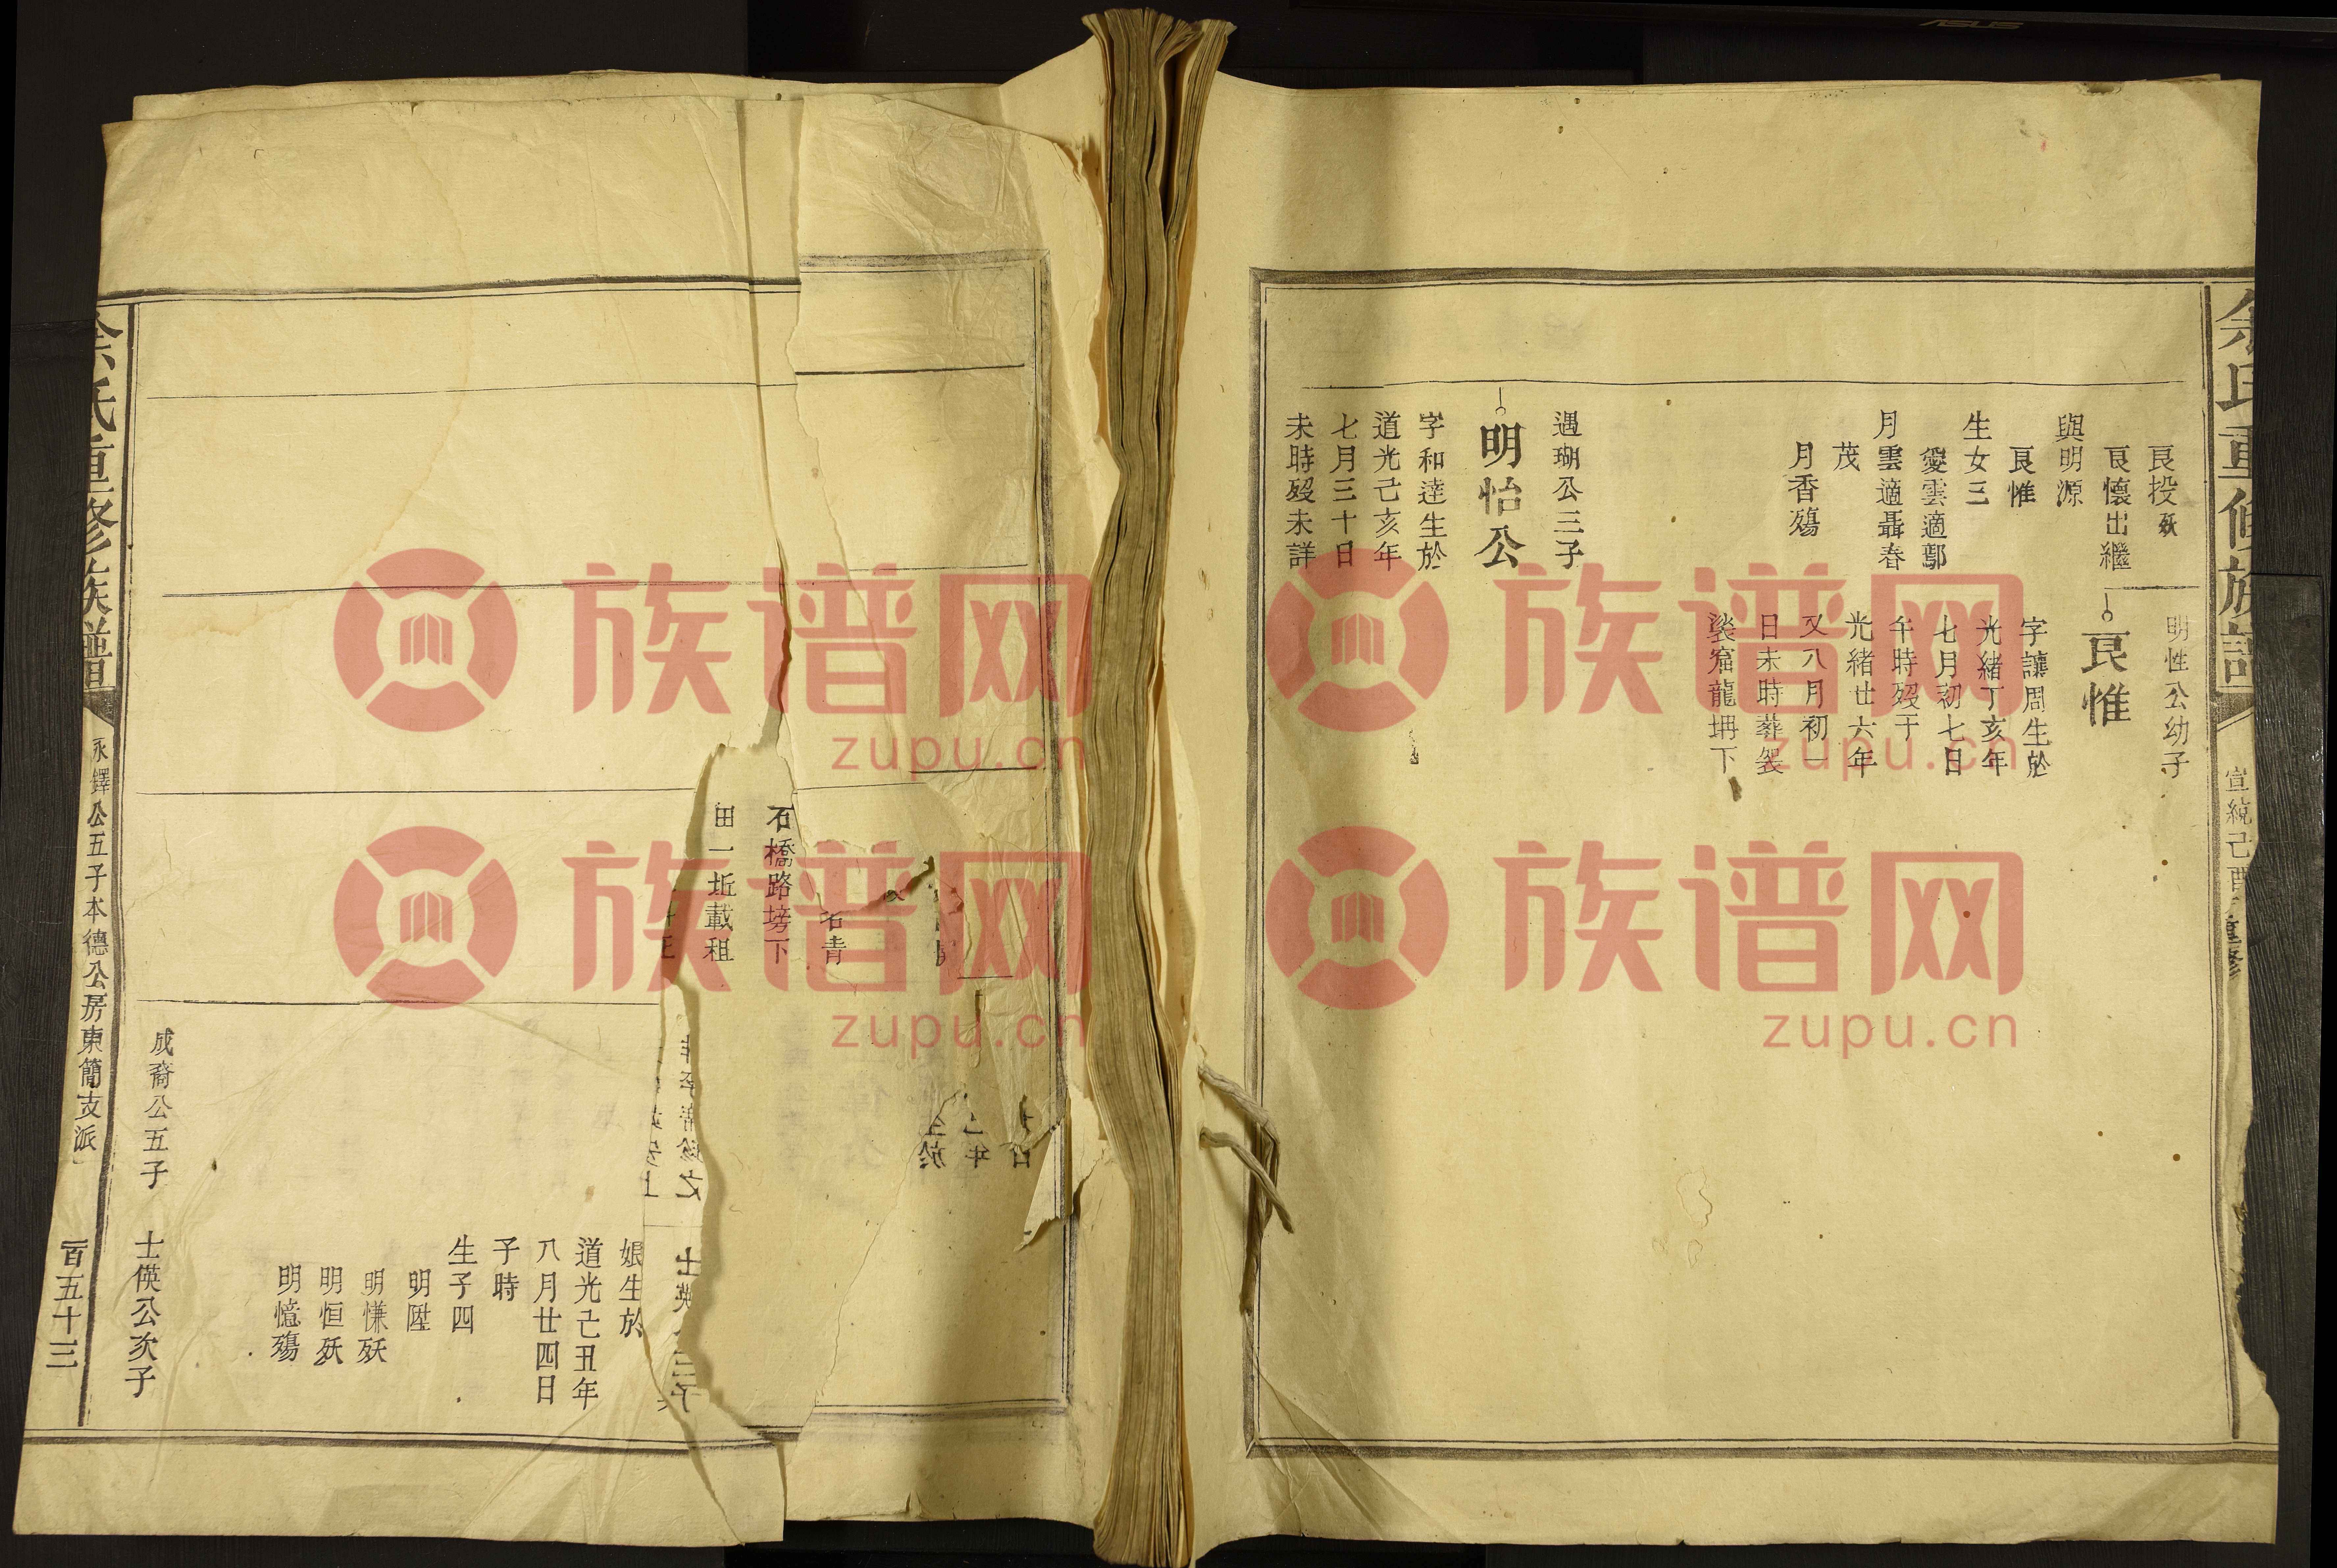 余氏重修族譜
宣統己酉
重修
艮投殀
艮懷出繼
與明源
艮惟
生女三
愛雲適鄢
月雲適聶春
茂
月香殤
遇瑚公三子
明怡公
字和達生於
道光己亥年
七月三十日
未時殁未詳
明性公幼子
艮惟
字讓周生於
光緒丁亥年
七月初七日
午時殁于
光緒廿六年
又八月初一
日未時葬袈
裟窟龍坍下
石青
石橋路塝下
田一坵載租
生於
年
士
娘生於
道光己丑年
八月廿四日
子時
生子四
明陞
明慊殀
明恒殀
明憶殤
成裔公五子
士偀公次子
余氏重修族譜
永鐸公五子本德公房東簡支派
一百五十三
族谱网
zupu.cn
族谱网
zupu.cn
族谱网
zupu.cn
族谱网
zupu.cn
ASUS